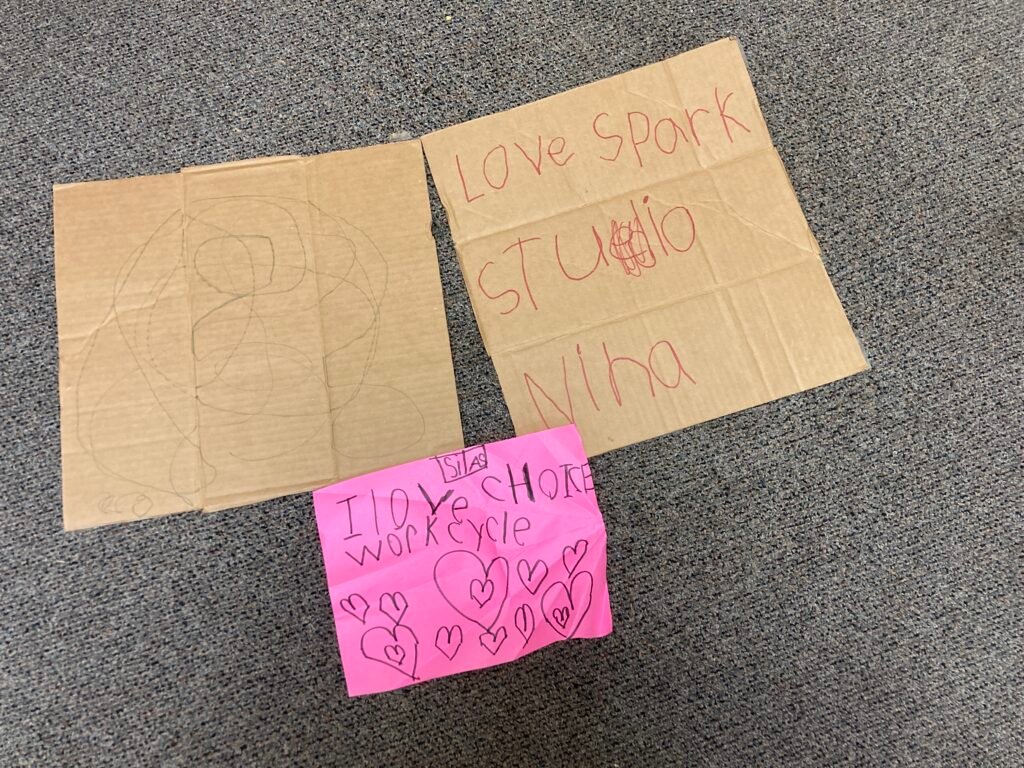 LOVe Spark
STUdio
Nina
SILAS
I love CHOICE
work cycle